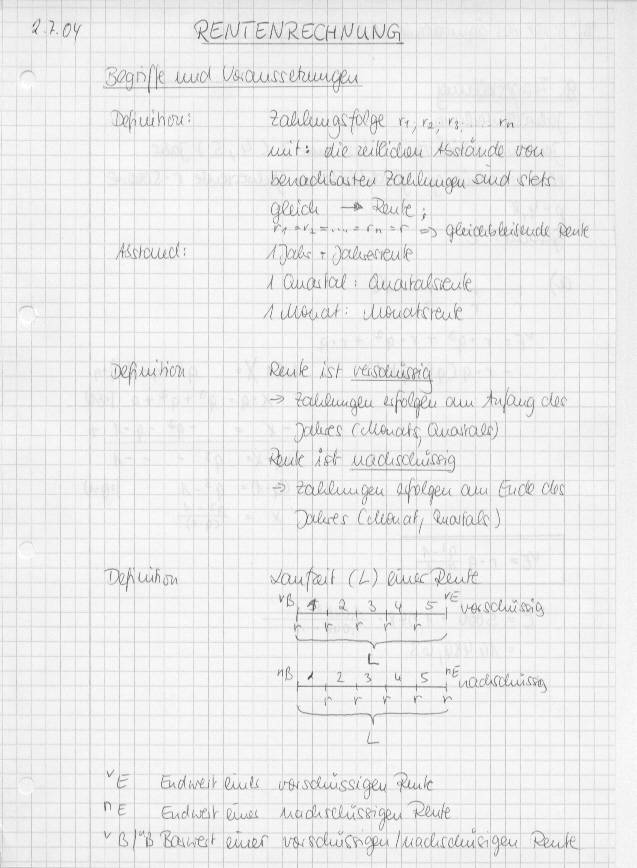 2.7.04 RENTENRECHNUNG
Begriffe und Voraussetzungen
Definition: Zahlungsfolge r₁, r₂, r₃, ... rₙ
mit: die zeitlichen Abstände von
benachbarten Zahlungen sind stets
gleich → Rente;
r₁ = r₂ = .... = rₙ = r ⇒ gleichbleibende Rente
Abstand: 1 Jahr : Jahresrente
1 Quartal : Quartalsrente
1 Monat : Monatsrente
Definition Rente ist vorschüssig
⇒ Zahlungen erfolgen am Anfang des
Jahres (Monats, Quartals)
Rente ist nachschüssig
⇒ Zahlungen erfolgen am Ende des
Jahres (Monat, Quartals)
Definition Laufzeit (L) einer Rente
ᵛB 1 2 3 4 5 ᵛE vorschüssig
r r r r r
L
ⁿB 1 2 3 4 5 ⁿE nachschüssig
r r r r r
L
ᵛE Endwert eines vorschüssigen Rente
ⁿE Endwert eines nachschüssigen Rente
ᵛB/ⁿB Barwert einer vorschüssigen/nachschüssigen Rente